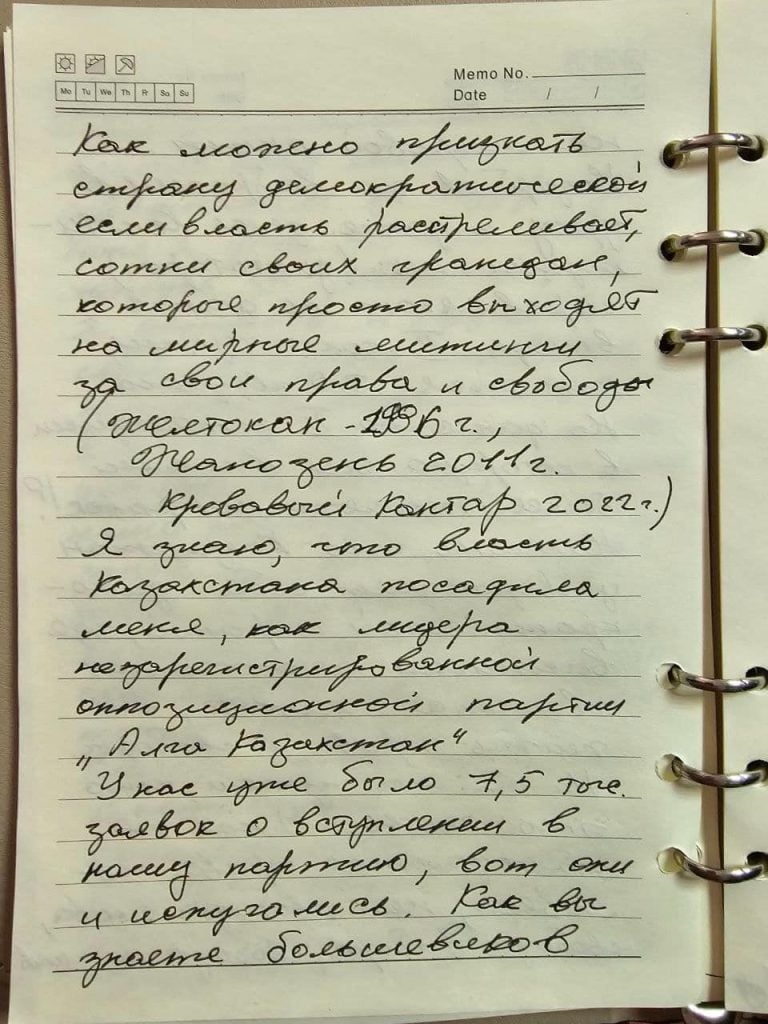 Memo No.
Mo Tu We Th Fr Sa Su
Date / /
Как можно признать
страну демократической
если власть расстреливает,
сотни своих граждан,
которые просто выходят
на мирные митинги
за свои права и свободы
(Желтоксан - 1986 г.,
Жанозень 2011 г.
Кровавый Кантар 2022 г.)
Я знаю, что власть
Казахстана посадила
меня, как лидера
незарегистрированной
оппозиционной партии
„Алга Казахстан“
У нас уже было 7,5 тыс.
заявок о вступлении в
нашу партию, вот они
и испугались. Как вы
знаете большевиков